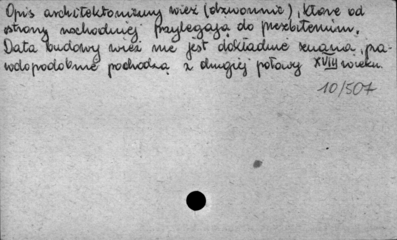 Opis architektoniczny wież (dzwonnic), które od
strony wschodniej przylegają do prezbiterium.
Data budowy wież nie jest dokładnie znana, pra-
wdopodobnie pochodzą z drugiej połowy XVIII wieku.
10/507